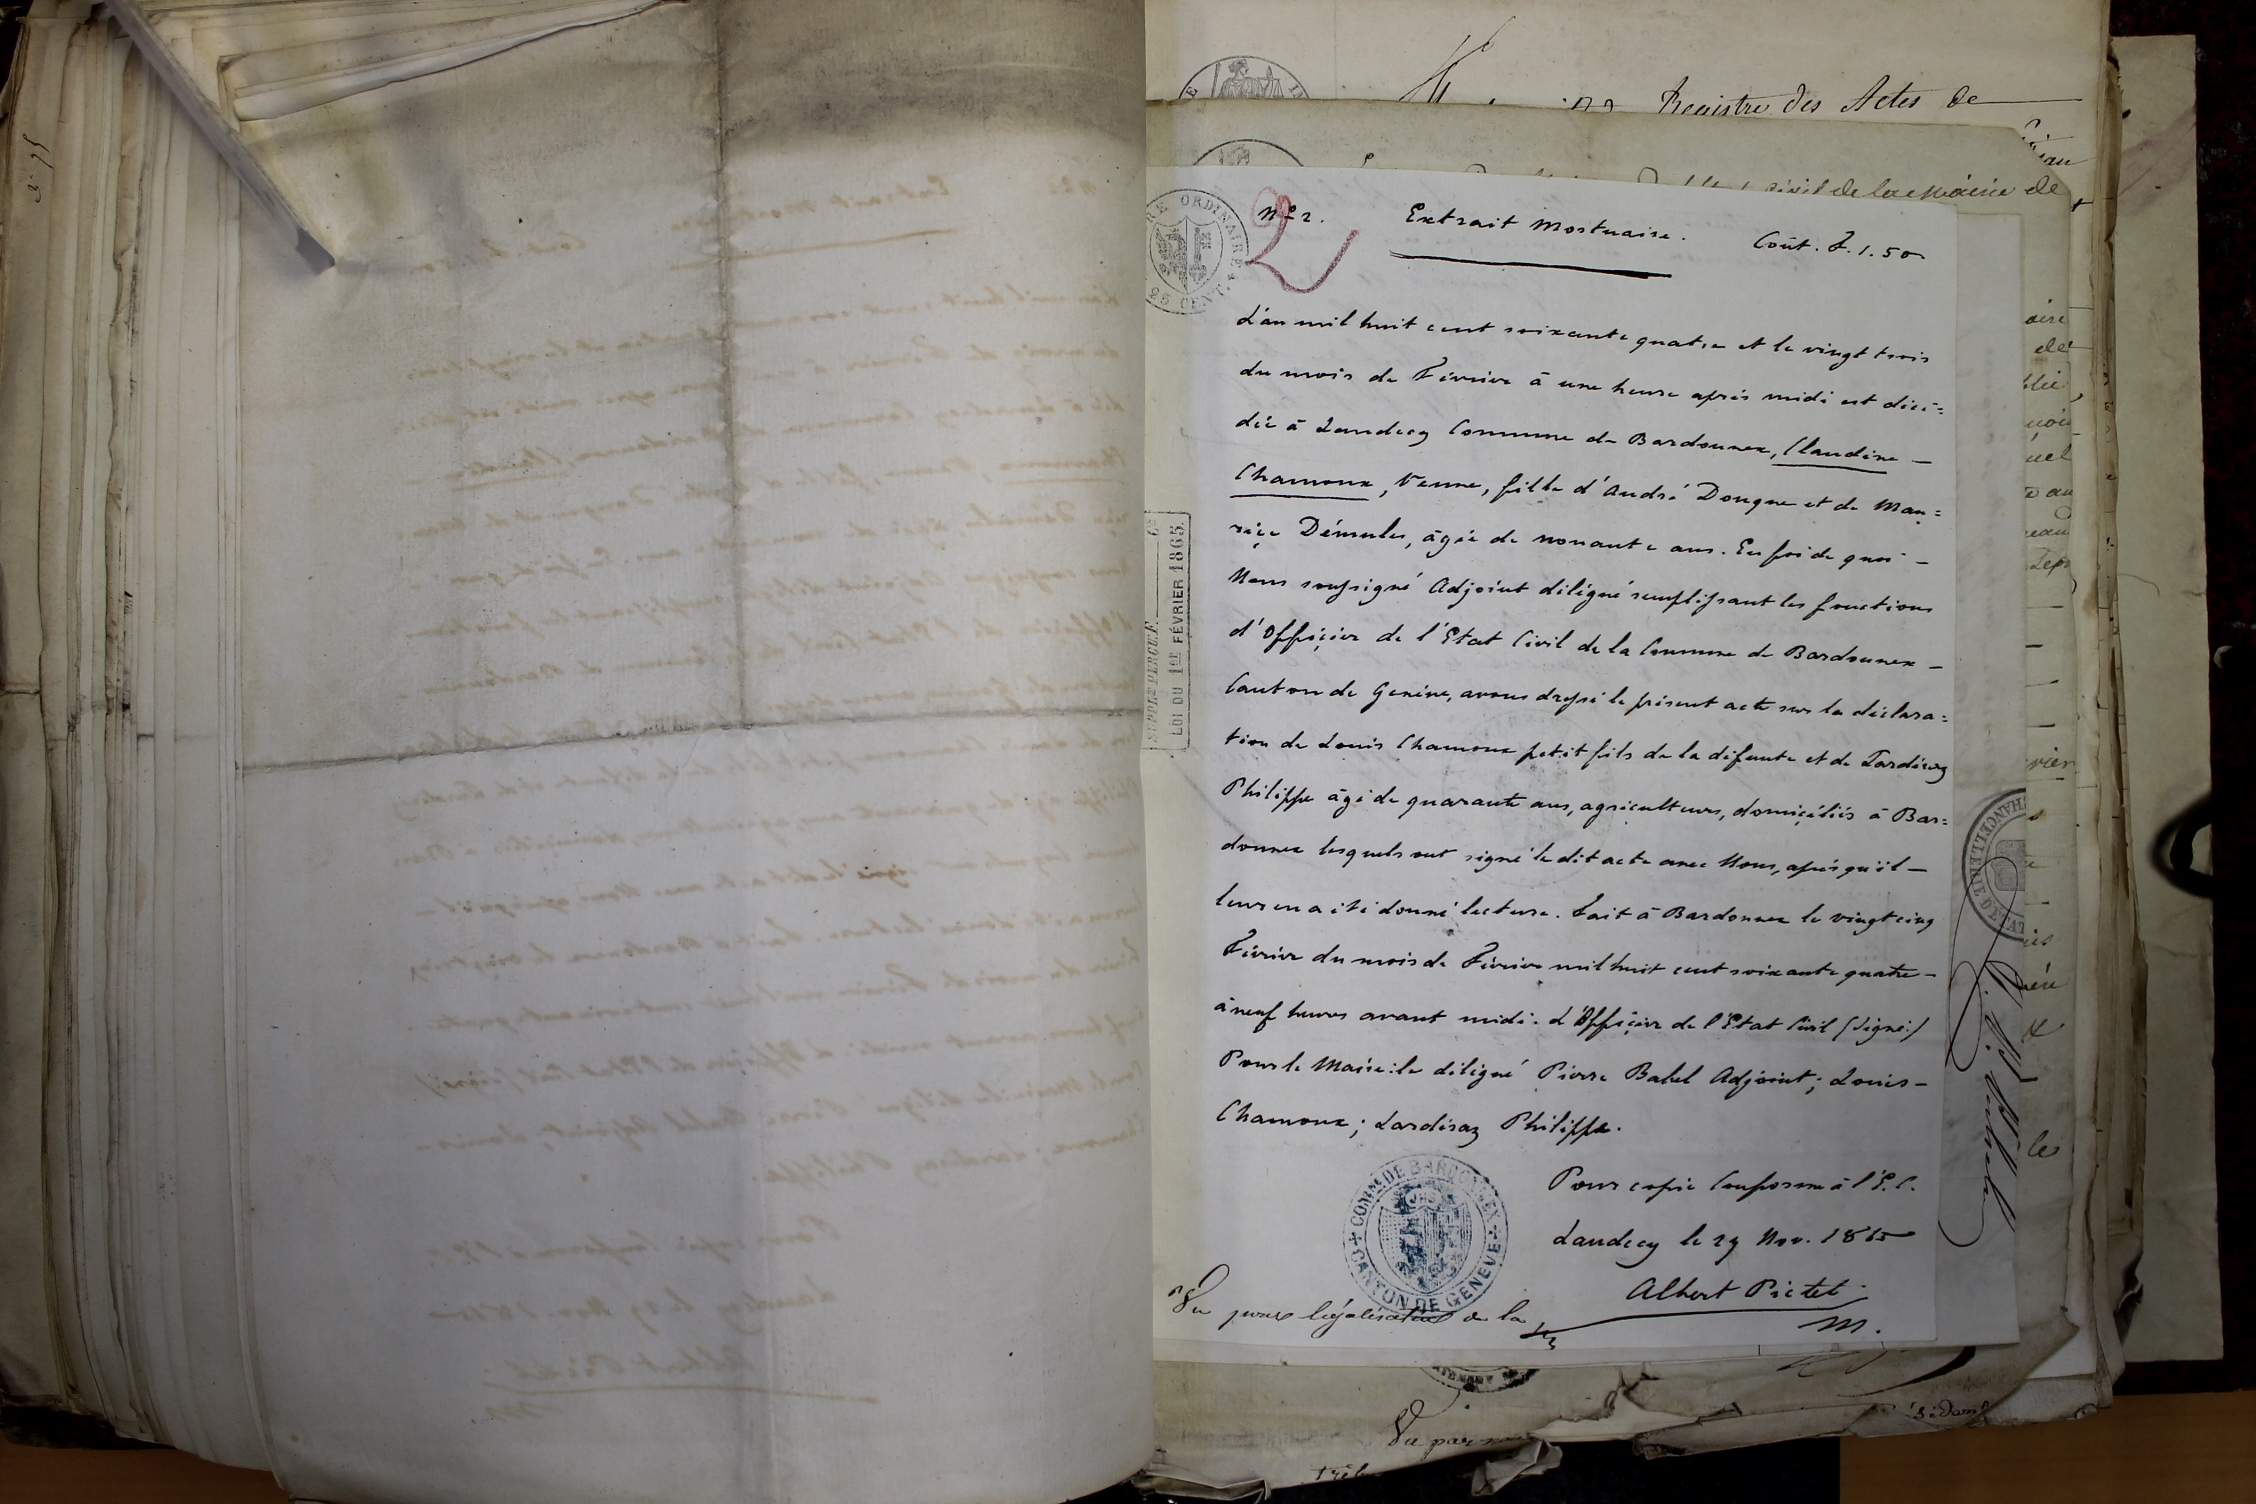 Registre des Actes de
civil de la Mairie de
N° 2. Extrait Mortuaire. Coût. F. 1. 50
2
TIMBRE ORDINAIRE
25 CENT.
L'an mil huit cent soixante quatre et le vingt trois
du mois de Février à une heure après midi est décé=
dée à Landecy Commune de Bardonnex, Claudine —
Chamoux, Veuve, fille d'André Dougne et de Mau=
rice Démules, âgée de nonante ans. En foi de quoi —
Nous soussigné Adjoint délégué remplissant les fonctions
d'Officier de l'Etat Civil de la Commune de Bardonnex —
Canton de Genève, avons dressé le présent acte sur la déclara=
tion de Louis Chamoux petit fils de la défunte et de Lardéraz
Philippe âgé de quarante ans, agriculteurs, domiciliés à Bar=
donnex lesquels ont signé le dit acte avec Nous, après qu'il —
leur en a été donné lecture. Fait à Bardonnex le vingt cinq
Février du mois de Février mil huit cent soixante quatre —
à neuf heures avant midi. L'Officier de l'Etat Civil (signé:)
Pour le Maire: le délégué Pierre Babel Adjoint; Louis —
Chamoux; Lardéraz Philippe.
Pour copie conforme à l'E. C.
Landecy le 29 Nov. 1865
Albert Pictet
m.
COMM. DE BARDONNEX
CANTON DE GENEVE
Vu pour légalisation de la
SUPPLt PERÇU: F. C.
LOI DU 1ER FÉVRIER 1865.
CHANCELLERIE D'ETAT
Vu par